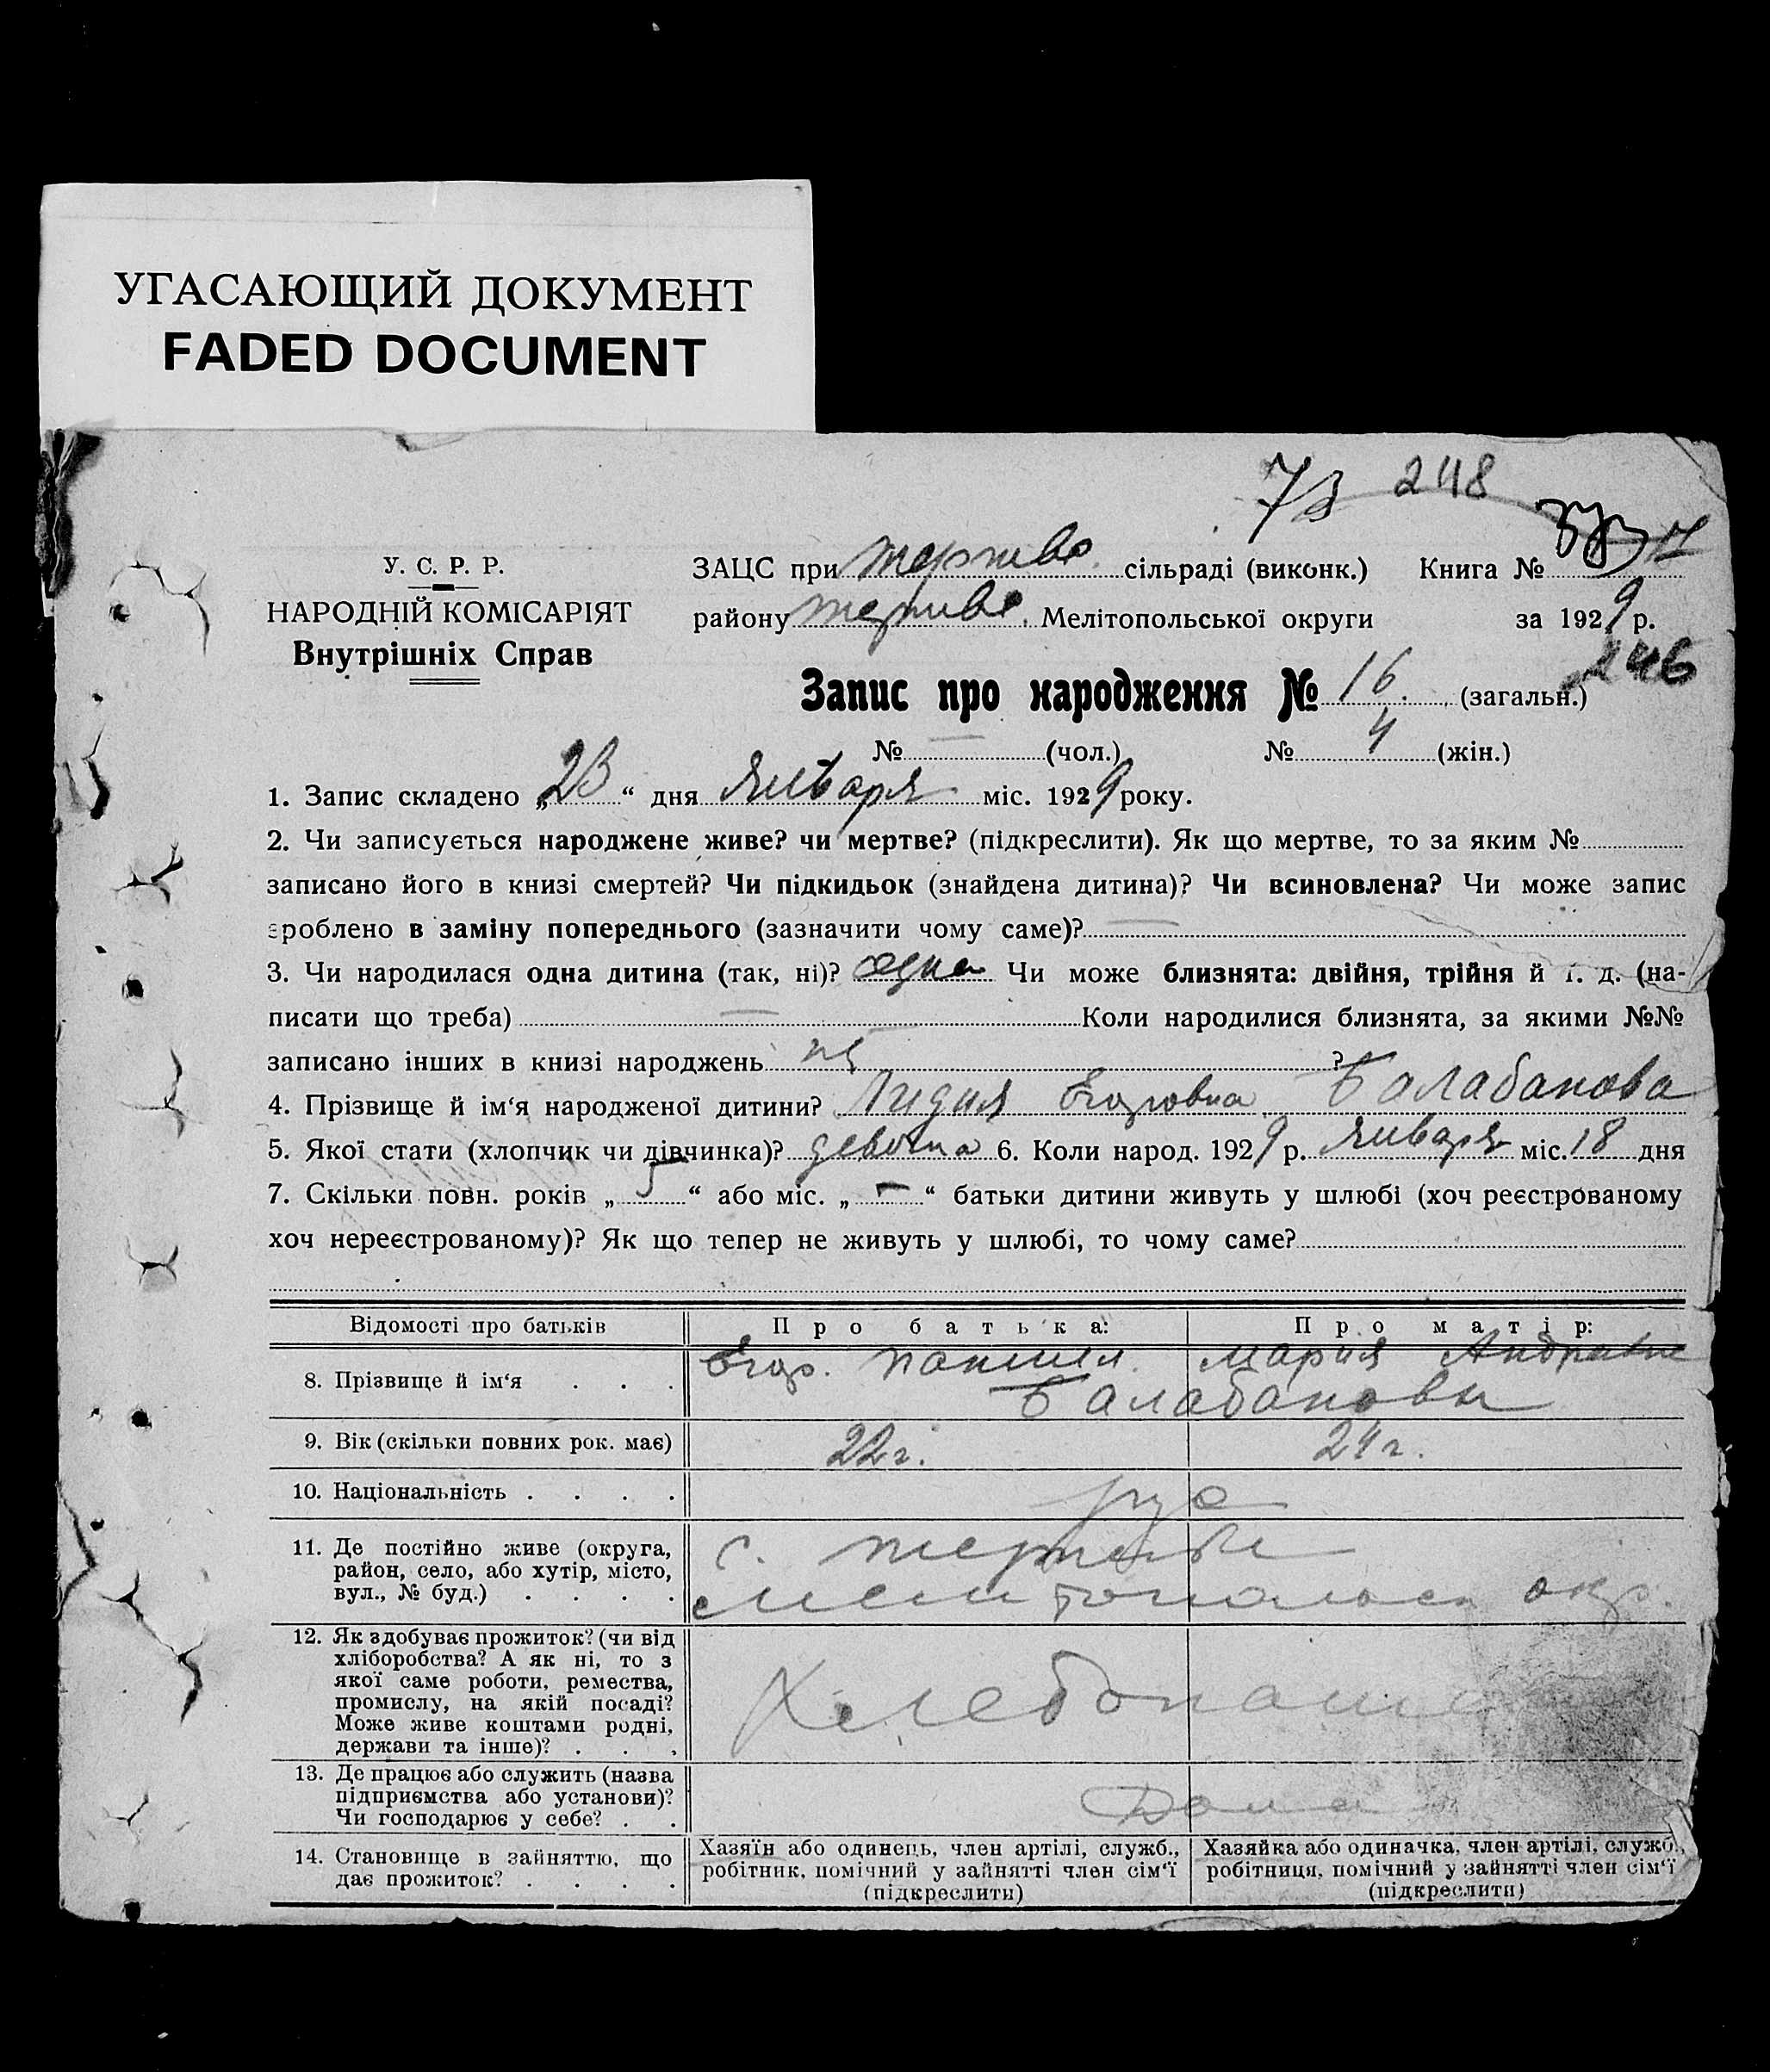 УГАСАЮЩИЙ ДОКУМЕНТ
FADED DOCUMENT
73 248
У. С. Р. Р.
НАРОДНІЙ КОМІСАРІЯТ
Внутрішніх Справ
ЗАЦС при сільраді (виконк.) Книга №
району Мелітопольської округи за 1929 р.
246
Запис про народження № 16. (загальн.)
№ — (чол.) № 4 (жін.)
1. Запис складено „23“ дня января міс. 1929 року.
2. Чи записується народжене живе? чи мертве? (підкреслити). Як що мертве, то за яким №
записано його в книзі смертей? Чи підкидьок (знайдена дитина)? Чи всиновлена? Чи може запис
зроблено в заміну попереднього (зазначити чому саме)? —
3. Чи народилася одна дитина (так, ні)? одна Чи може близнята: двійня, трійня й т. д. (на-
писати що треба) — Коли народилися близнята, за якими №№
записано інших в книзі народжень ?
4. Прізвище й ім‘я народженої дитини? Лидия Егоровна Балабанова
5. Якої стати (хлопчик чи дівчинка)? девочка 6. Коли народ. 1929 р. января міс. 18 дня
7. Скільки повн. років „ 5 “ або міс. „ — “ батьки дитини живуть у шлюбі (хоч реєстрованому
хоч нереєстрованому)? Як що тепер не живуть у шлюбі, то чому саме?
Відомості про батьків Про батька: Про матір:
8. Прізвище й ім‘я . . . Егор. Мария
Балабановы
9. Вік (скільки повних рок. має) 22 г. 24 г.
10. Національність . . . . рус
11. Де постійно живе (округа,
район, село, або хутір, місто,
вул., № буд.) . . . . с.
окр.
12. Як здобуває прожиток? (чи від
хліборобства? А як ні, то з
якої саме роботи, ремества,
промислу, на якій посаді?
Може живе коштами родні,
держави та інше)? . . .
13. Де працює або служить (назва
підприємства або установи)?
Чи господарює у себе? . . Дома
14. Становище в зайняттю, що
дає прожиток? . . . .
Хазяїн або одинець, член артілі, служб.,
робітник, помічний у зайнятті член сім‘ї
(підкреслити)
Хазяйка або одиначка, член артілі, служб.,
робітниця, помічний у зайнятті член сім‘ї
(підкреслити)